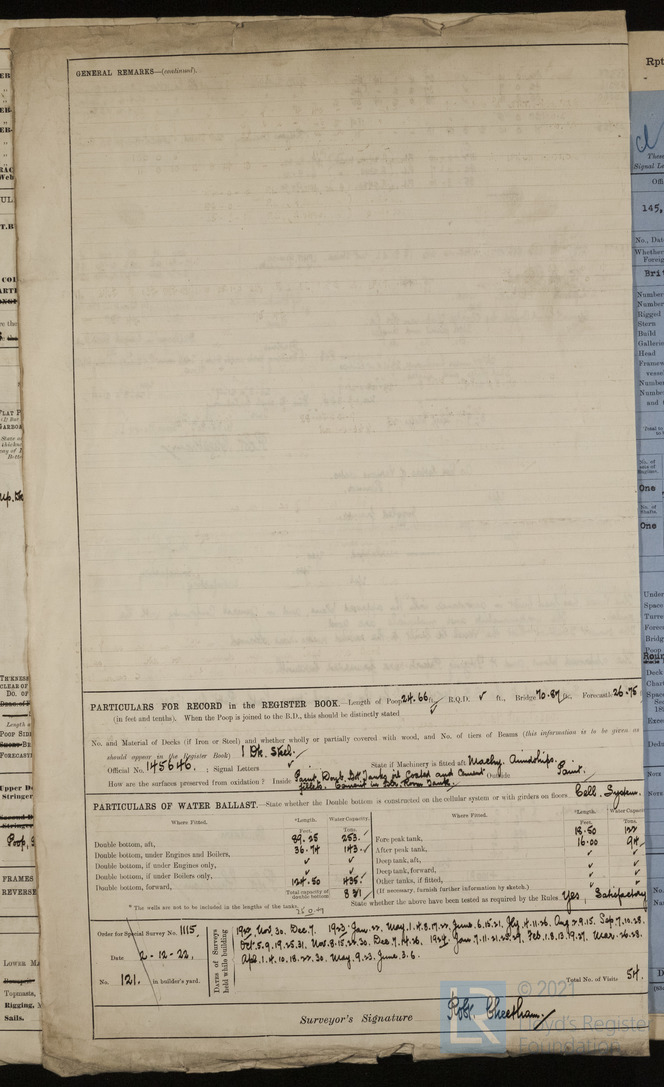 GENERAL REMARKS—(continued).
PARTICULARS FOR RECORD in the REGISTER BOOK.—Length of Poop 24.66 ft., R.Q.D. ✓ ft., Bridge 70.87 ft., Forecastle 26.75
(in feet and tenths). When the Poop is joined to the B.D., this should be distinctly stated ✓
No. and Material of Decks (if Iron or Steel) and whether wholly or partially covered with wood, and No. of tiers of Beams (this information is to be given as
should appear in the Register Book) 1 Dk. Steel.
Official No. 145646. ; Signal Letters ✓ State if Machinery is fitted aft Machy. Amidships.
How are the surfaces preserved from oxidation? Inside Paint, Outside Paint.
PARTICULARS OF WATER BALLAST.—State whether the Double bottom is constructed on the cellular system or with girders on floors Cell. System.
Where Fitted. *Length. Feet. Water Capacity. Tons. Where Fitted. *Length. Feet. Water Capacity. Tons.
Double bottom, aft, 89.25 253. Fore peak tank, 18.50 122
Double bottom, under Engines and Boilers, 36.74 143. After peak tank, 16.00 94
Double bottom, if under Engines only, ✓ ✓ Deep tank, aft, ✓ ✓
Double bottom, if under Boilers only, ✓ ✓ Deep tank, forward, ✓ ✓
Double bottom, forward, 124.50 435. Other tanks, if fitted, ✓ ✓
Total capacity of double bottom 831 (If necessary, furnish further information by sketch.)
* The wells are not to be included in the lengths of the tanks. State whether the above have been tested as required by the Rules Yes, Satisfactory
Order for Special Survey No. 1115.
Date 2-12-22.
No. 121. in builder's yard.
DATES of Surveys held while building
1922 Nov. 30. Dec. 7. 1923. Jan. 22. May. 1.4.8.17.22. June. 6.15.21. July. 4.11.26. Aug 2.9.15. Sep. 7.10.28.
Oct. 5.9.19.25.31. Nov. 8.15.22.30. Dec. 7.14.26. 1924. Jan. 7.11.21.25.29. Feb. 1.8.13.19.27. Mar. 20.28.
Apl. 1.4.10.18.22.30. May. 9.23. June. 3.6.
Total No. of Visits 54.
Surveyor's Signature Robt. Cheetham.
© 2021
Lloyd's Register
Foundation